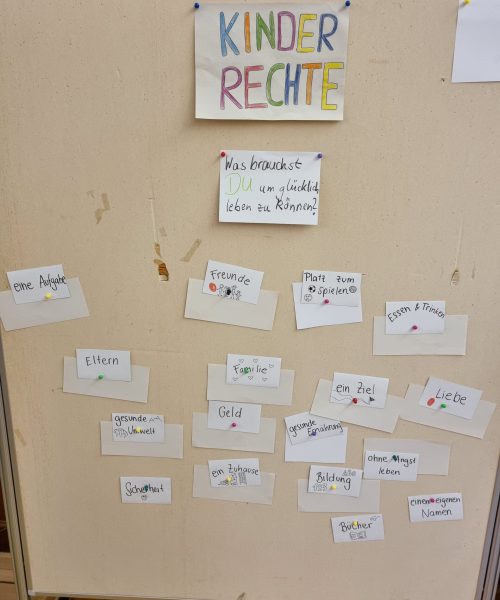 KINDER
RECHTE
Was brauchst
DU um glücklich
leben zu können?
eine Aufgabe
Freunde
Platz zum
Spielen
Essen & Trinken
Eltern
Familie
ein Ziel
Liebe
gesunde
Umwelt
Geld
gesunde
Ernährung
ohne Angst
leben
Sicherheit
ein Zuhause
Bildung
einen eigenen
Namen
Bücher